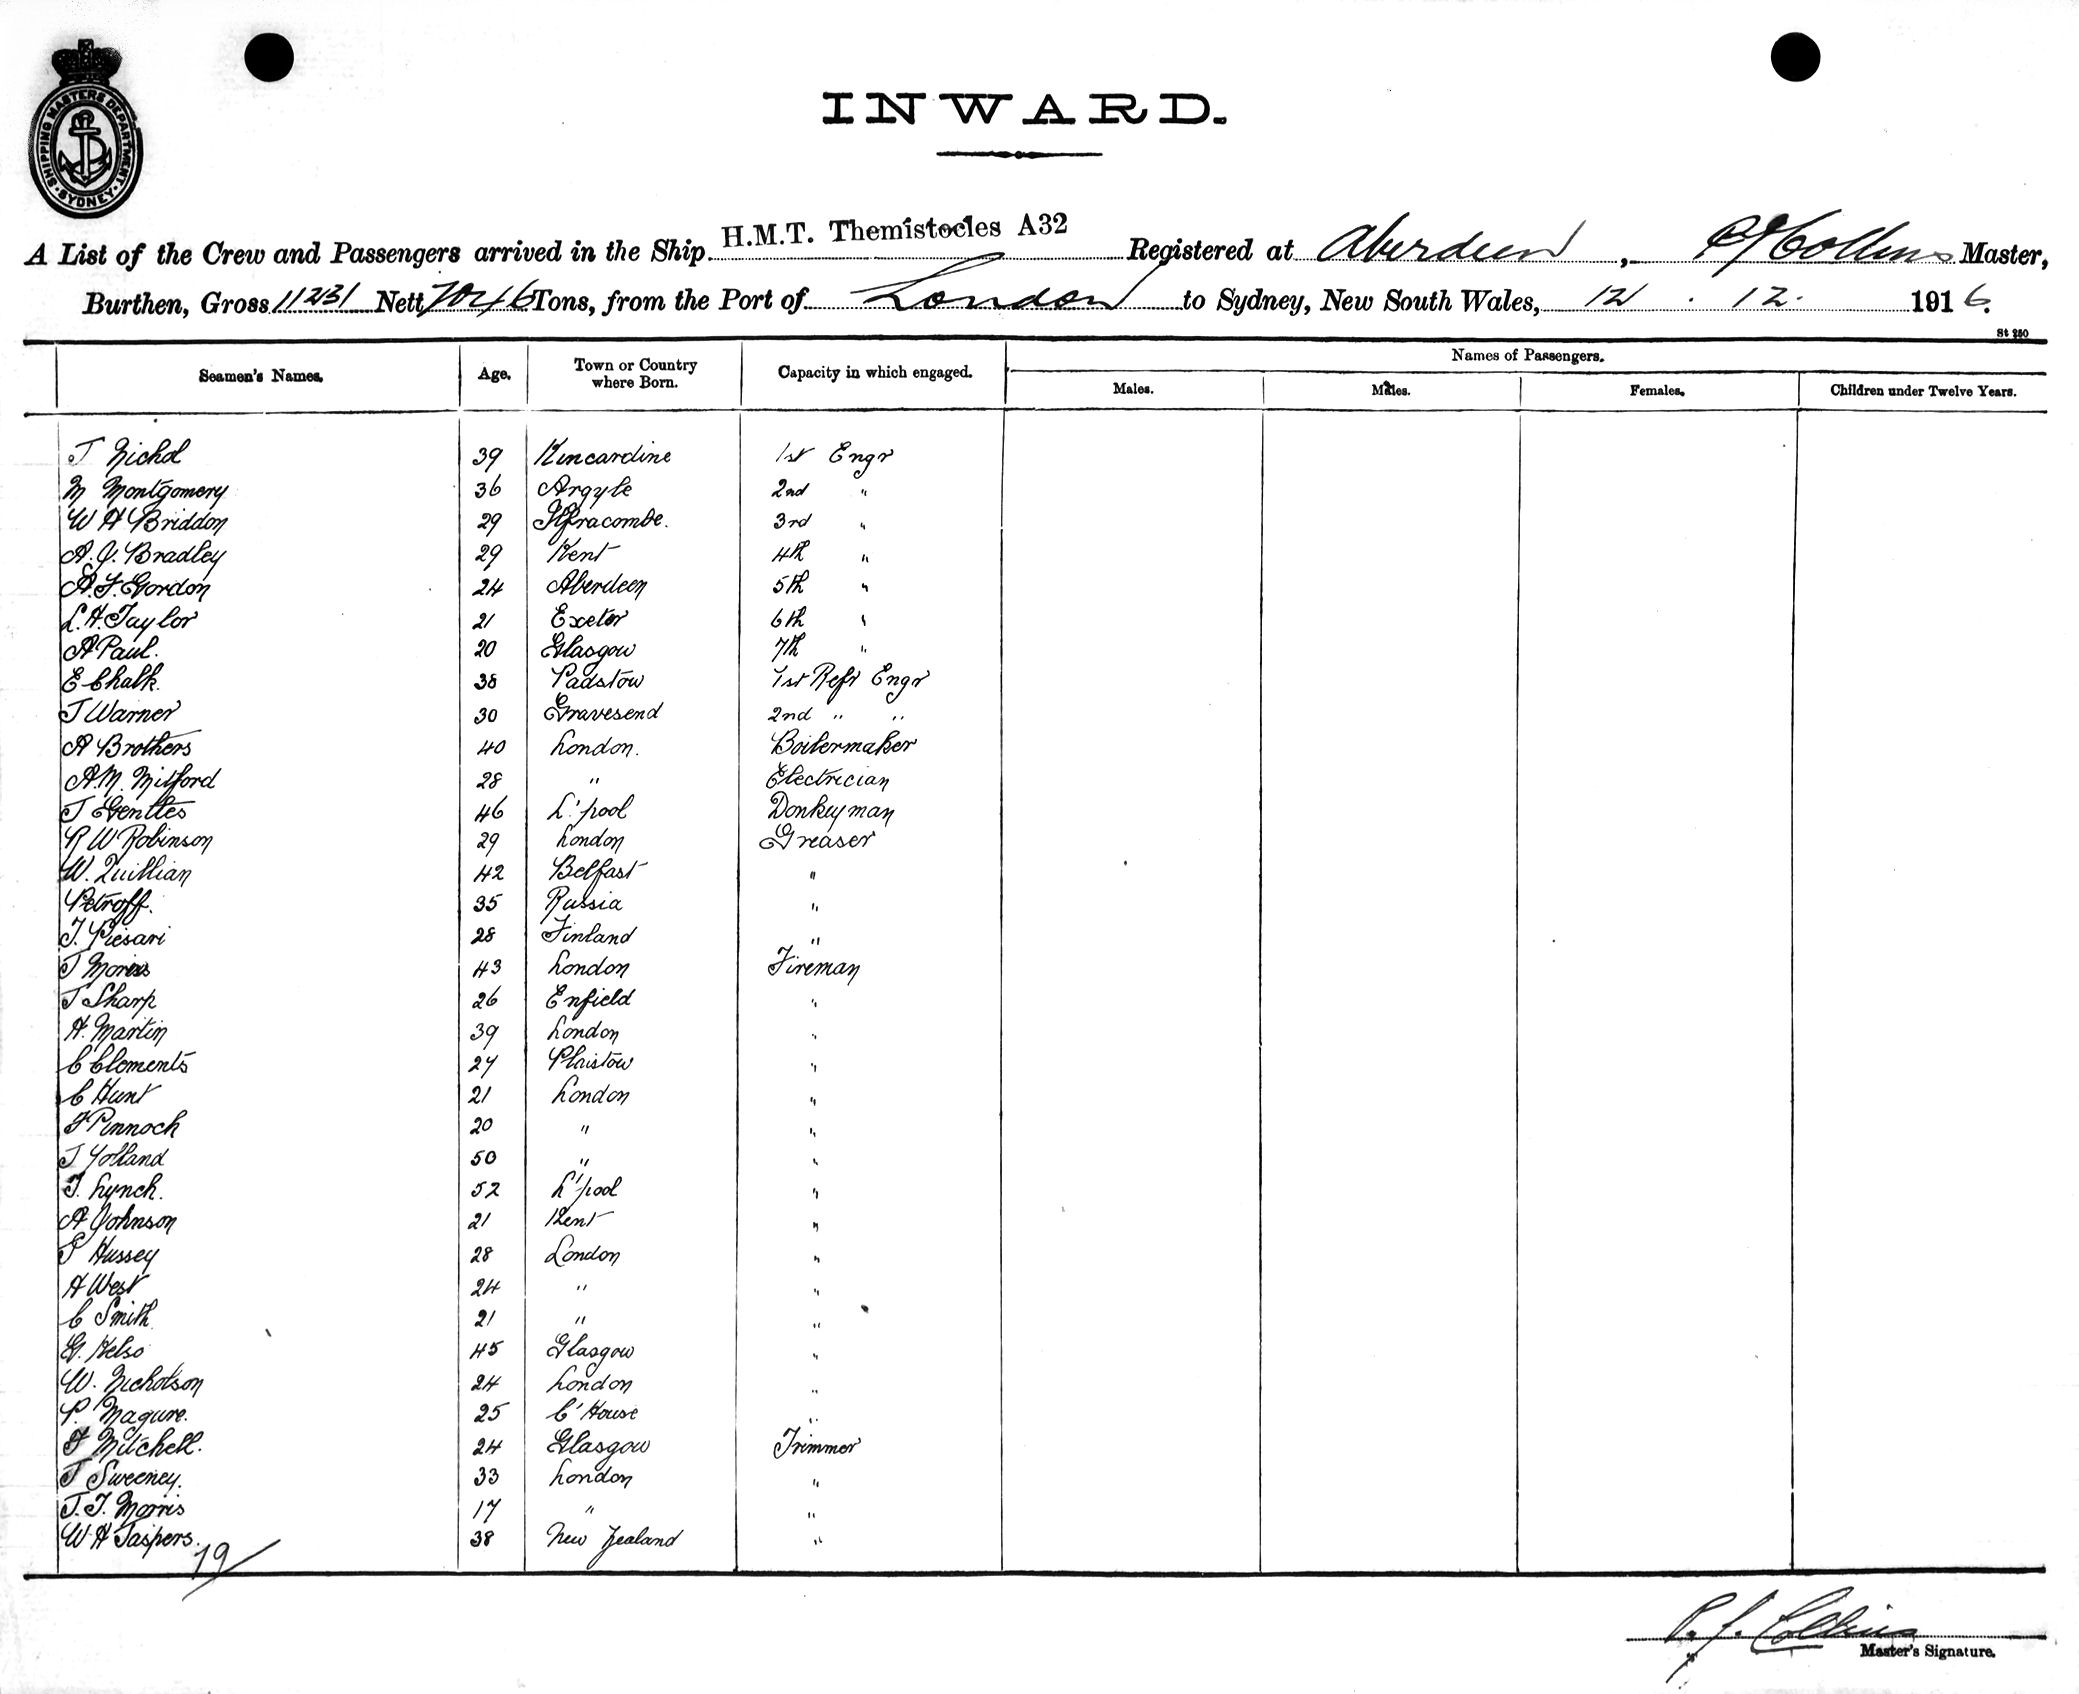 SHIPPING MASTERS DEPARTMENT · SYDNEY ·
INWARD.
A List of the Crew and Passengers arrived in the Ship H.M.T. Themistocles A32 Registered at Aberdeen, P J Collins Master,
Burthen, Gross 11231 Nett 7046 Tons, from the Port of London to Sydney, New South Wales, 12 . 12. 1916.
St 250
Seamen's Names. Age. Town or Country where Born. Capacity in which engaged. Names of Passengers.
Males. Males. Females. Children under Twelve Years.
J Nichol 39 Kincardine 1st Engr
M Montgomery 36 Argyle 2nd "
W H Briddon 29 Ilfracombe. 3rd "
A. J. Bradley 29 Kent 4th "
A. F. Gordon 24 Aberdeen 5th "
L. H. Taylor 21 Exeter 6th "
A Paul. 20 Glasgow 7th "
E Chalk. 38 Padstow 1st Refr Engr
J Warner 30 Gravesend 2nd " "
A Brothers 40 London. Boilermaker
A. M. Mitford 28 " Electrician
J Gentles 46 L'pool Donkeyman
R W Robinson 29 London Greaser
W. Quillian 42 Belfast "
Petroff. 35 Russia "
J. Piesari 28 Finland "
J Morris 43 London Fireman
J Sharp 26 Enfield "
H. Martin 39 London "
C Clements 27 Plaistow "
C Hunt 21 London "
F Pinnock 20 " "
J Yolland 50 " "
J. Lynch. 52 L'pool "
A Johnson 21 Kent "
P Hussey 28 London "
H West 24 " "
C Smith 21 " "
G. Kelso 45 Glasgow "
W. Nicholson 24 London "
P. Maguire. 25 C'House "
F Mitchell. 24 Glasgow Trimmer
J Sweeney. 33 London "
J. J. Morris 17 " "
W H Jaspers. 38 New Zealand "
79/
P. J. Collins
Master's Signature.